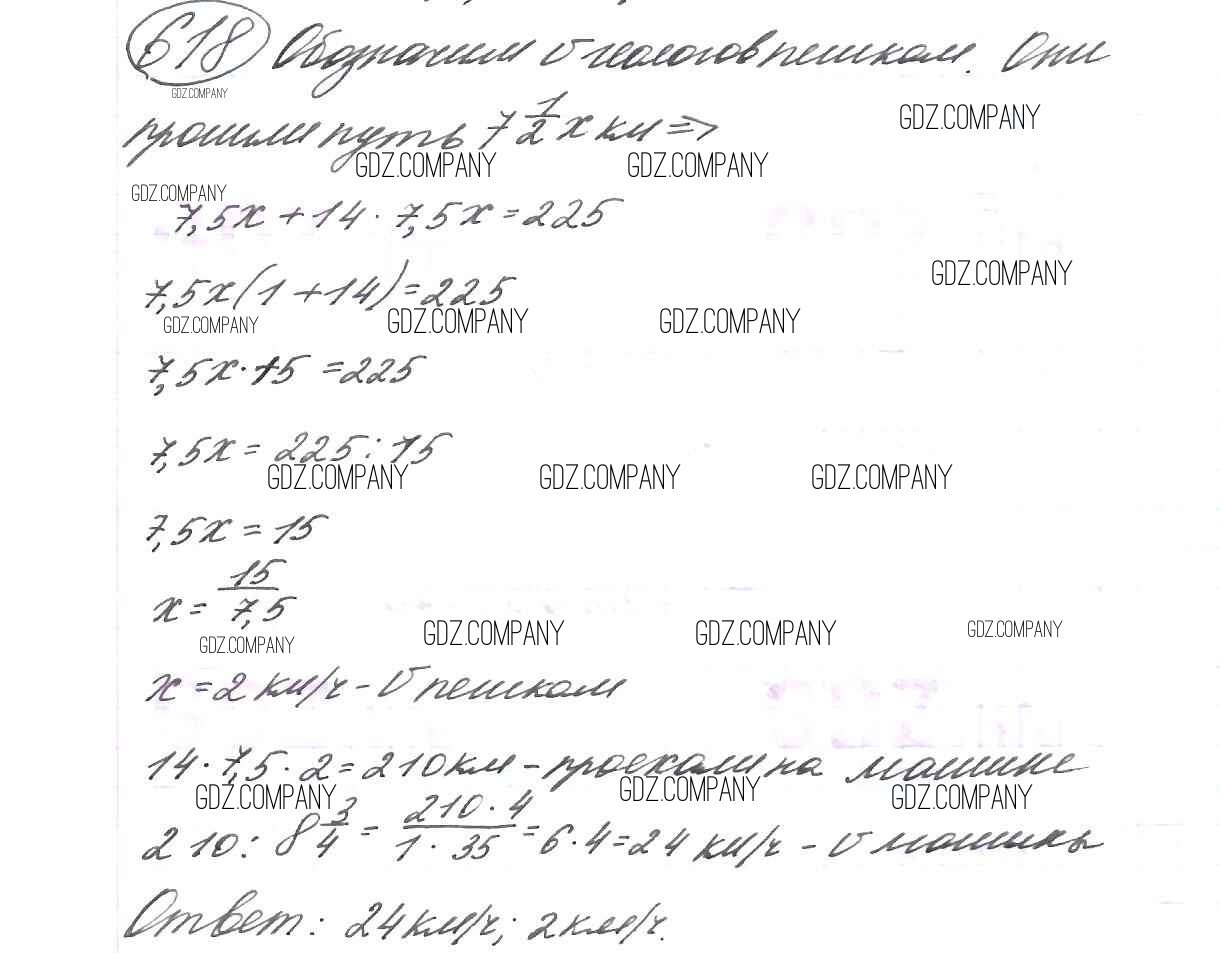 618 Обозначим v геологов пешком. Они
GDZ.COMPANY
прошли путь 7 1/2 x км =>
GDZ.COMPANY
GDZ.COMPANY GDZ.COMPANY
GDZ.COMPANY
7,5x + 14 · 7,5x = 225
GDZ.COMPANY
7,5x(1 + 14) = 225
GDZ.COMPANY GDZ.COMPANY GDZ.COMPANY
7,5x · 15 = 225
7,5x = 225 : 15
GDZ.COMPANY GDZ.COMPANY GDZ.COMPANY
7,5x = 15
x = 15/7,5
GDZ.COMPANY GDZ.COMPANY GDZ.COMPANY GDZ.COMPANY
x = 2 км/ч - v пешком
14 · 7,5 · 2 = 210 км - проехали на машине
GDZ.COMPANY GDZ.COMPANY GDZ.COMPANY
210 : 8 3/4 = 210 · 4/1 · 35 = 6 · 4 = 24 км/ч - v машины
Ответ: 24 км/ч; 2 км/ч.